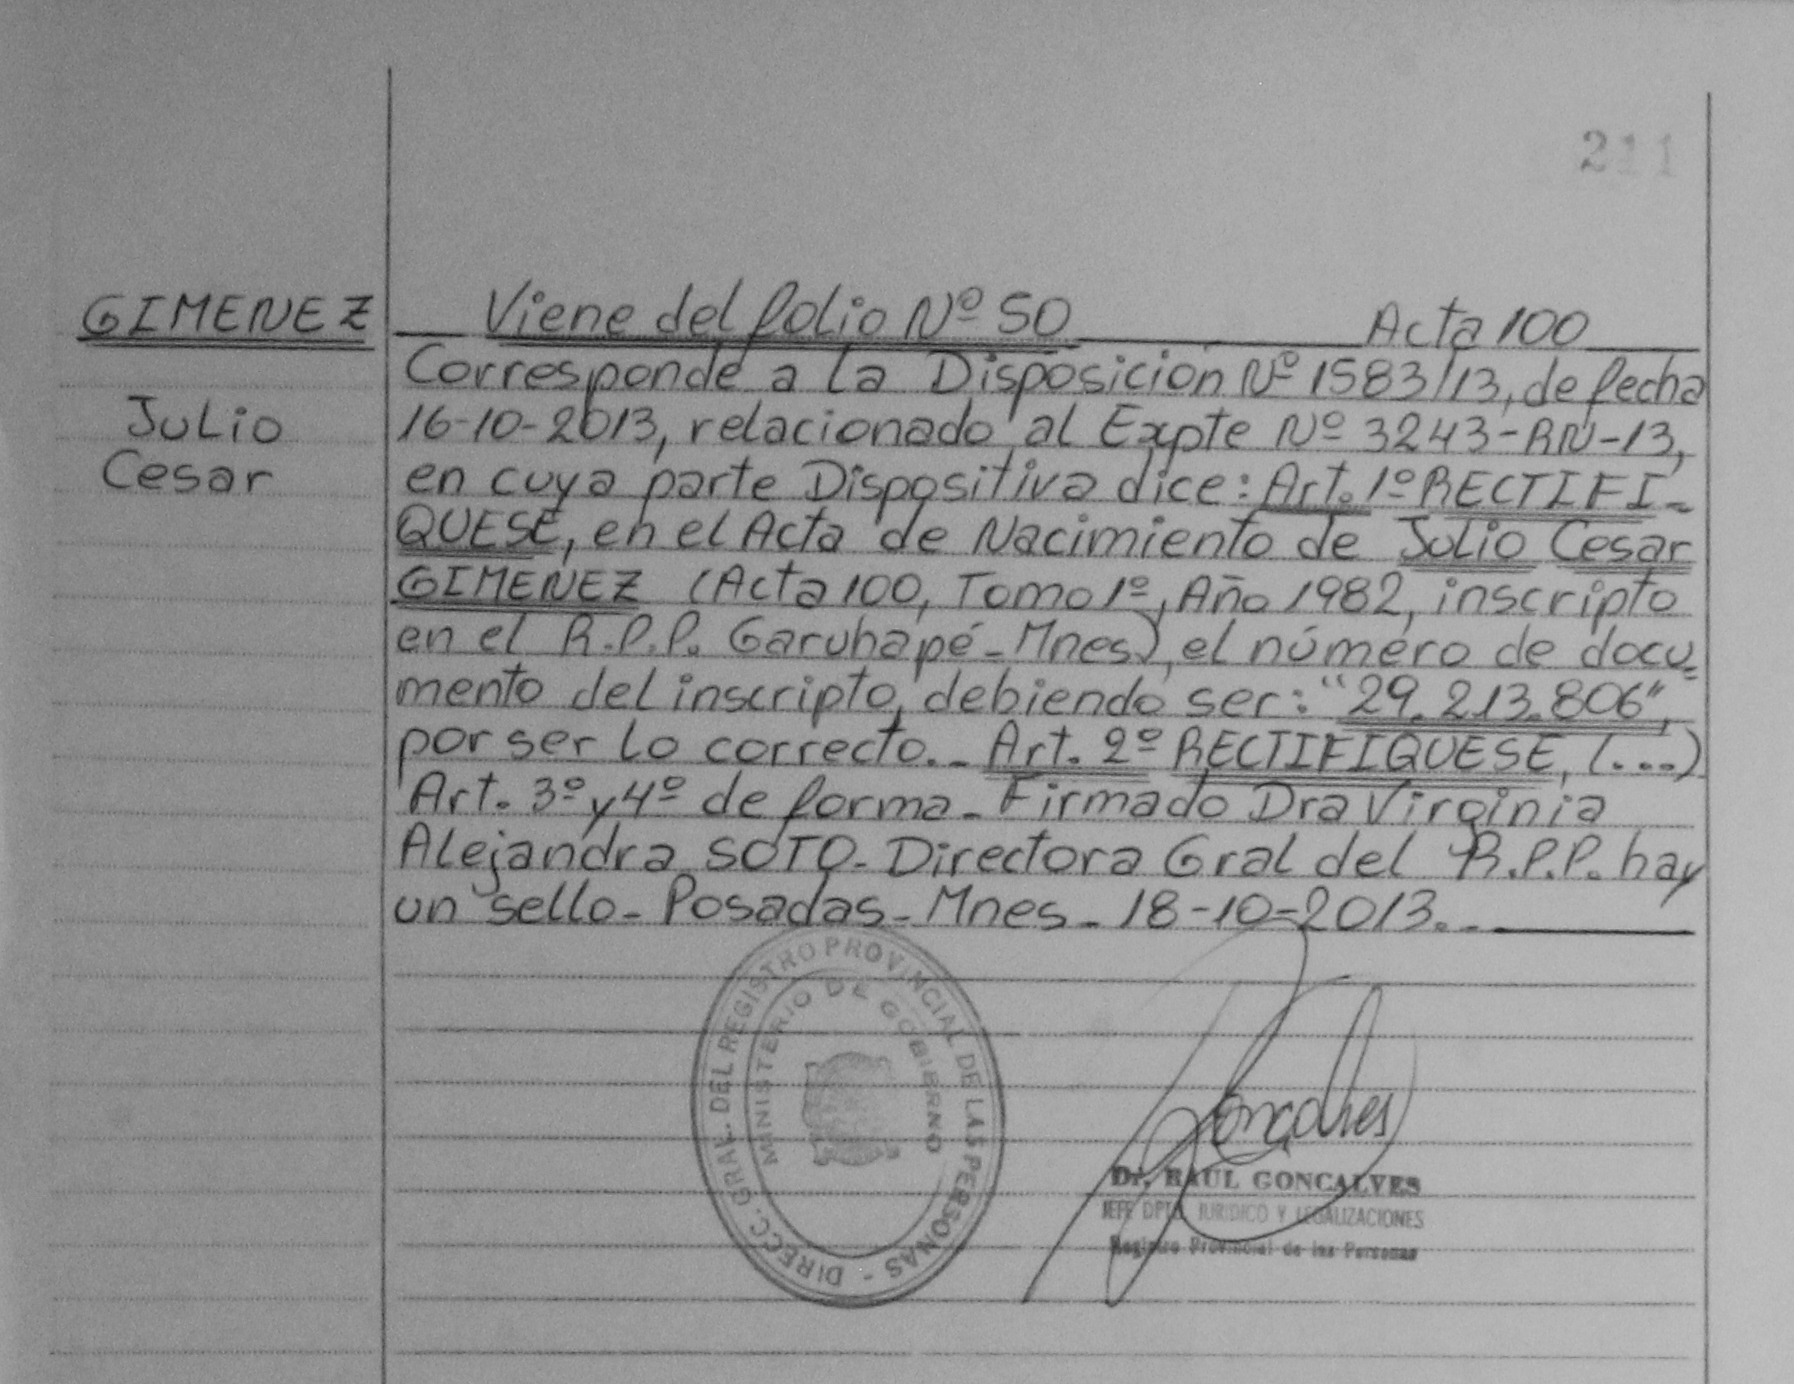 211
GIMENEZ
Julio
Cesar
Viene del folio Nº 50 Acta 100
Corresponde a la Disposición Nº 1583/13, de fecha
16-10-2013, relacionado al Expte Nº 3243-RN-13,
en cuya parte Dispositiva dice: Art. 1º RECTIFI-
QUESE, en el Acta de Nacimiento de Julio Cesar
GIMENEZ (Acta 100, Tomo 1º, Año 1982, inscripto
en el R.P.P. Garuhapé-Mnes), el número de docu-
mento del inscripto, debiendo ser: "29.213.806",
por ser lo correcto.- Art. 2º RECTIFIQUESE, (...)
Art. 3º y 4º de forma- Firmado Dra Virginia
Alejandra SOTO- Directora Gral del R.P.P. hay
un sello- Posadas- Mnes- 18-10-2013.-
DIRECC. GRAL. DEL REGISTRO PROVINCIAL DE LAS PERSONAS -
MINISTERIO DE GOBIERNO
Goncalves
Dr. RAUL GONCALVES
JEFE DPTO. JURIDICO Y LEGALIZACIONES
Registro Provincial de las Personas